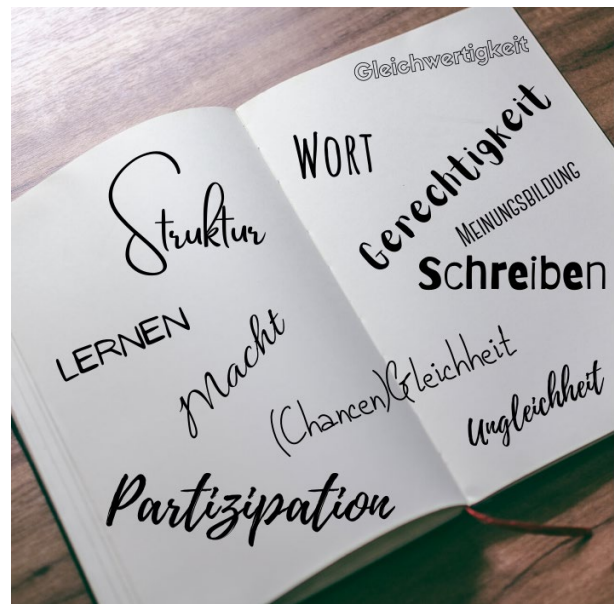 Gleichwertigkeit
WORT
Gerechtigkeit
MEINUNGSBILDUNG
Struktur
Schreiben
LERNEN
Macht
(Chancen)Gleichheit
Ungleichheit
Partizipation